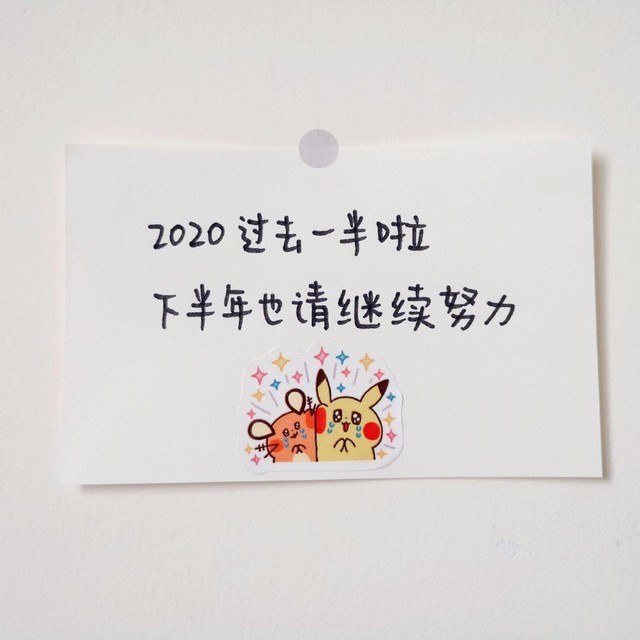 2020过去一半啦
下半年也请继续努力